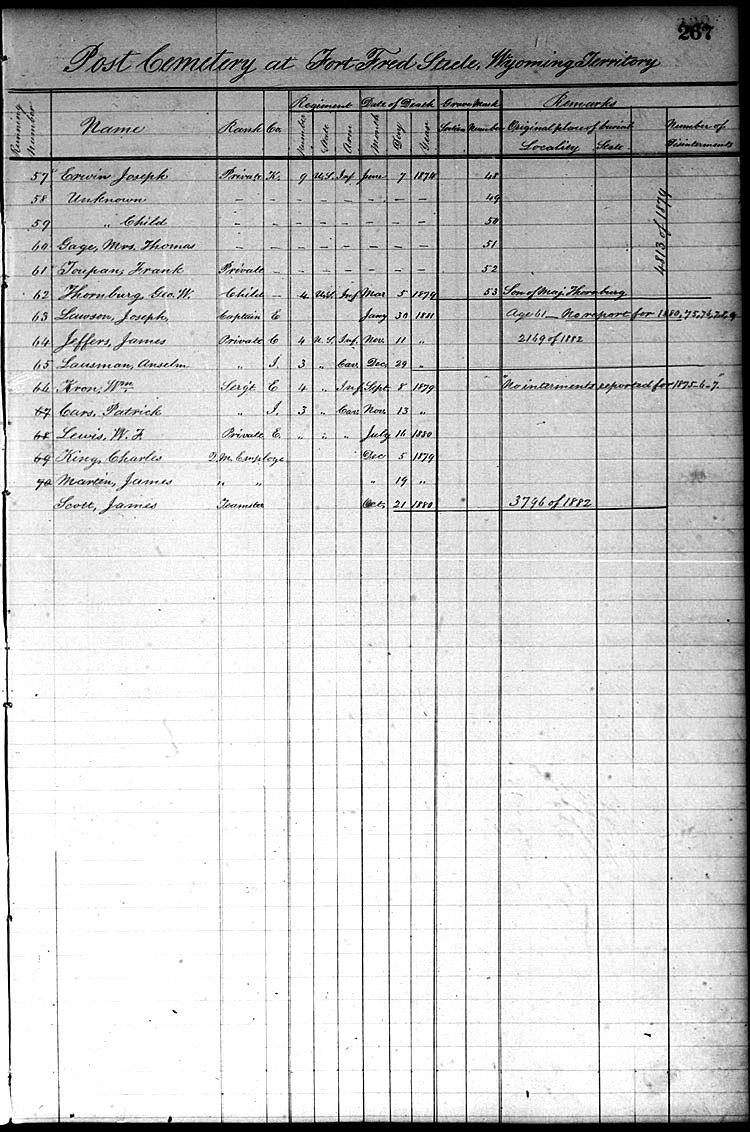 267
Post Cemetery at Fort Fred Steele, Wyoming Territory
Running Number Name Rank Co. Regiment Number State Arm Date of Death Month Day Year Grave Mark Section Number Remarks Original place of burial Locality State Number of Disinterments
57 Erwin Joseph Private K. 9 U.S. Inf. June 7 1874 48
58 Unknown – – – – – – – – 49
59 „ Child – – – – – – – – 50
60 Gage, Mrs. Thomas – – – – – – – – 51
61 Toupan, Frank Private – – – – – – – 52
62 Thornburg, Geo. W. Child – 4 U.S. Inf Mar 5 1879 53 Son of Maj. Thornburg
4813 of 1879
63 Lawson, Joseph Captain E Jany 30 1881 Age 61 — No report for 1880, 75, 76, 7, 8, 9
64 Jeffers, James Private C 4 U.S. Inf. Nov. 11 „ 2169 of 1882
65 Lausman, Anselm „ I. 3 „ Cav. Dec. 29 „
66 Kron, Wm Sergt E 4 „ Inf. Sept. 8 1879 "No interments reported for 1875-6-7."
67 Cars, Patrick „ I. 3 „ Cav. Nov. 13 „
68 Lewis, W. F. Private E. „ „ „ July 16 1880
69 King, Charles Q.M. Employe Dec 5 1879
70 Martin, James „ „ „ 19 „
Scott, James Teamster Oct. 21 1880 3796 of 1882